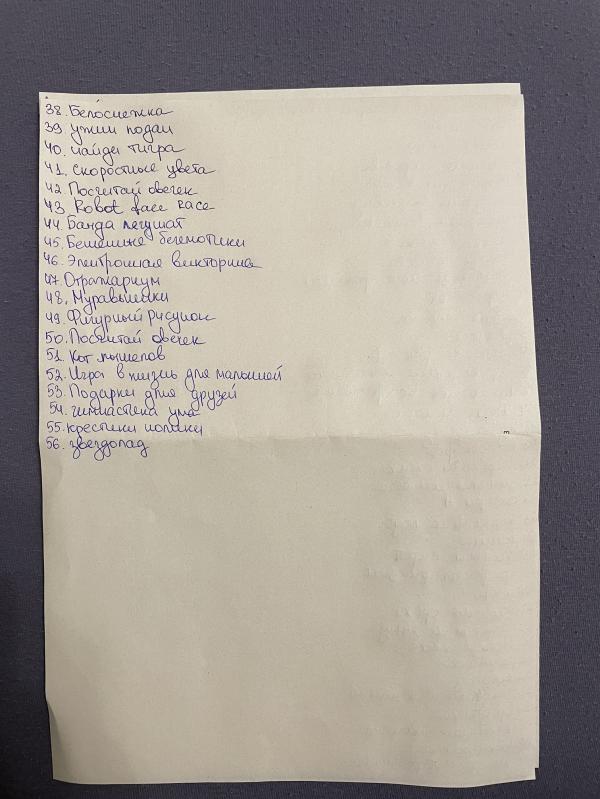 38. Белоснежка
39. ужин подан
40. найди тигра
41. скоростные цвета
42 Посчитай овечек
43 Robot face race
44. Банда лягушат
45. Бешеные бегемотики
46. Электронная викторина
47. Отражариум
48. Муравьишки
49. Фигурный рисунок
50. Посчитай овечек
51. Кот мышелов
52. Игра в жизнь для малышей
53. Подарки для друзей
54. гимнастика ума
55. крестики нолики
56. звездопад